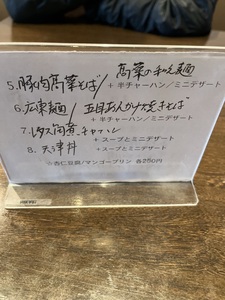 5.豚肉高菜そば/高菜の和え麺
+半チャーハン/ミニデザート
6.広東麺/五目あんかけ焼きそば
+半チャーハン/ミニデザート
7.レタス チャーハン
+スープとミニデザート
8.天津丼 +スープとミニデザート
※杏仁豆腐/マンゴープリン 各250円